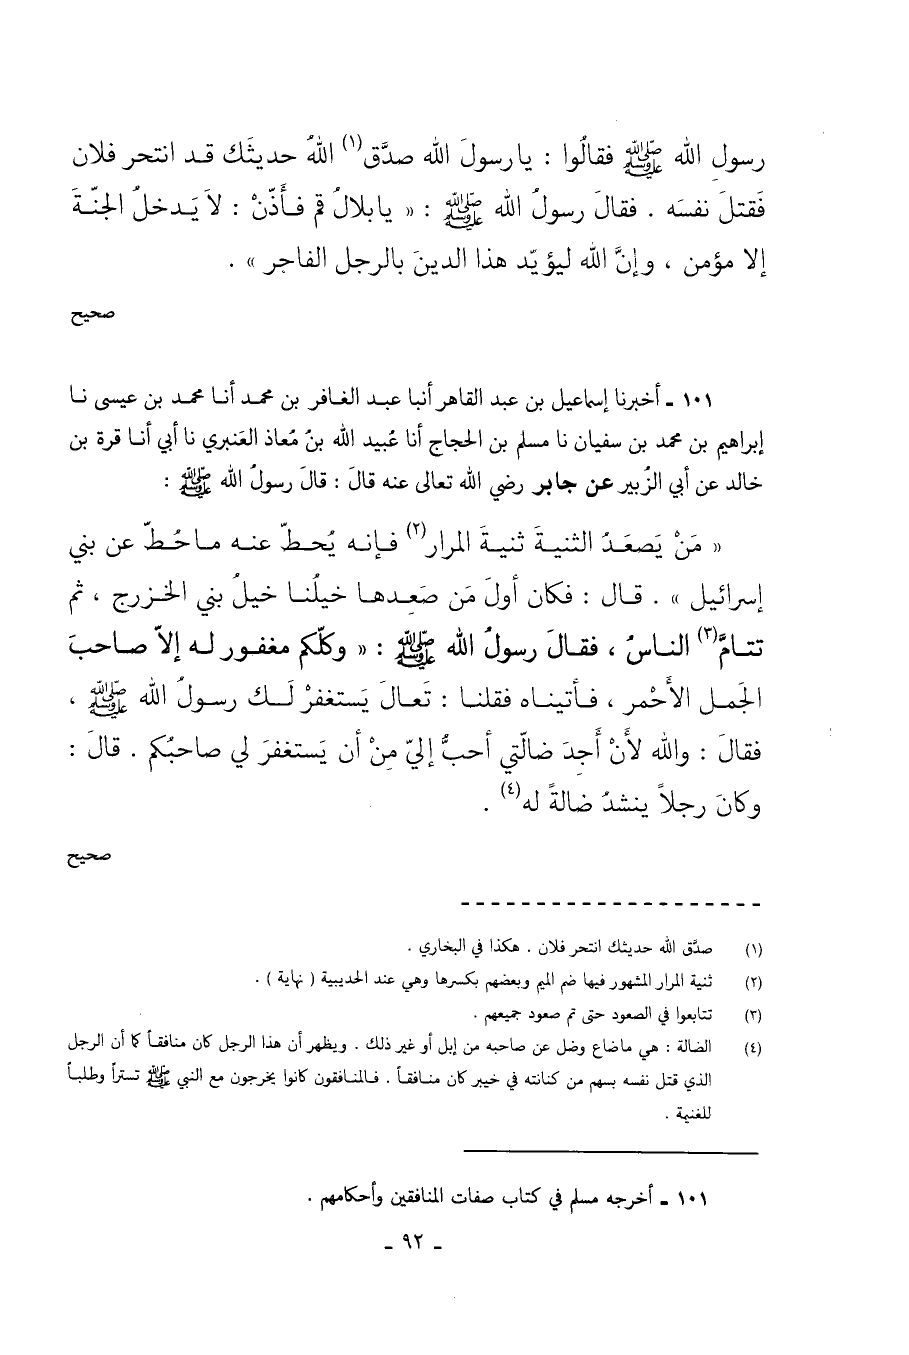 رسول الله ﷺ فقالُوا : يارسولَ الله صدَّق(١) اللهُ حديثَك قد انتحر فلان
فَقتلَ نفسَه . فقالَ رسولُ الله ﷺ : « يابلالُ قم فأَذّنْ : لاَ يَدخلُ الجنّةَ
إلا مؤمن ، وإنَّ الله ليؤيّد هذا الدينَ بالرجل الفاجر » .
صحيح
١٠١ ـ أخبرنا إسماعيل بن عبد القاهر أنبا عبد الغافر بن محمد أنا محمد بن عيسى نا
إبراهيم بن محمد بن سفيان نا مسلم بن الحجاج أنا عُبيد الله بنُ مُعاذ العَنبري نا أبي أنا قرة بن
خالد عن أبي الزُبير عن جابر رضي الله تعالى عنه قالَ : قالَ رسولُ الله ﷺ :
« مَنْ يَصعَدُ الثنيةَ ثنيةَ المرار(٢) فإنه يُحطّ عنه ماحُطّ عن بني
إسرائيل » . قال : فكان أولَ مَن صَعِدها خيلُنا خيلُ بني الخزرج ، ثم
تتامَّ(٣) الناسُ ، فقالَ رسولُ الله ﷺ : « وكلّكم مغفور له إلاّ صاحبَ
الجَمل الأَحْمر ، فأتيناه فقلنا : تَعالَ يَستغفرْ لَك رسولُ الله ﷺ ،
فقالَ : والله لأَنْ أَجدَ ضالّتي أحبُّ إليّ مِنْ أن يَستغفرَ لي صاحبُكم . قالَ :
وكانَ رجلاً ينشدُ ضالةً له(٤) .
صحيح
(١) صدَّق الله حديثك انتحر فلان . هكذا في البخاري .
(٢) ثنية المرار المشهور فيها ضم الميم وبعضهم بكسرها وهي عند الحديبية ( نهاية ) .
(٣) تتابعوا في الصعود حتى تم صعود جميعهم .
(٤) الضالة : هي ماضاع وضل عن صاحبه من إبل أو غير ذلك . ويظهر أن هذا الرجل كان منافقاً كما أن الرجل
الذي قتل نفسه بسهم من كنانته في خيبر كان منافقاً . فالمنافقون كانوا يخرجون مع النبي ﷺ تستراً وطلباً
للغنية .
١٠١ ـ أخرجه مسلم في كتاب صفات المنافقين وأحكامهم .
ـ ٩٢ ـ